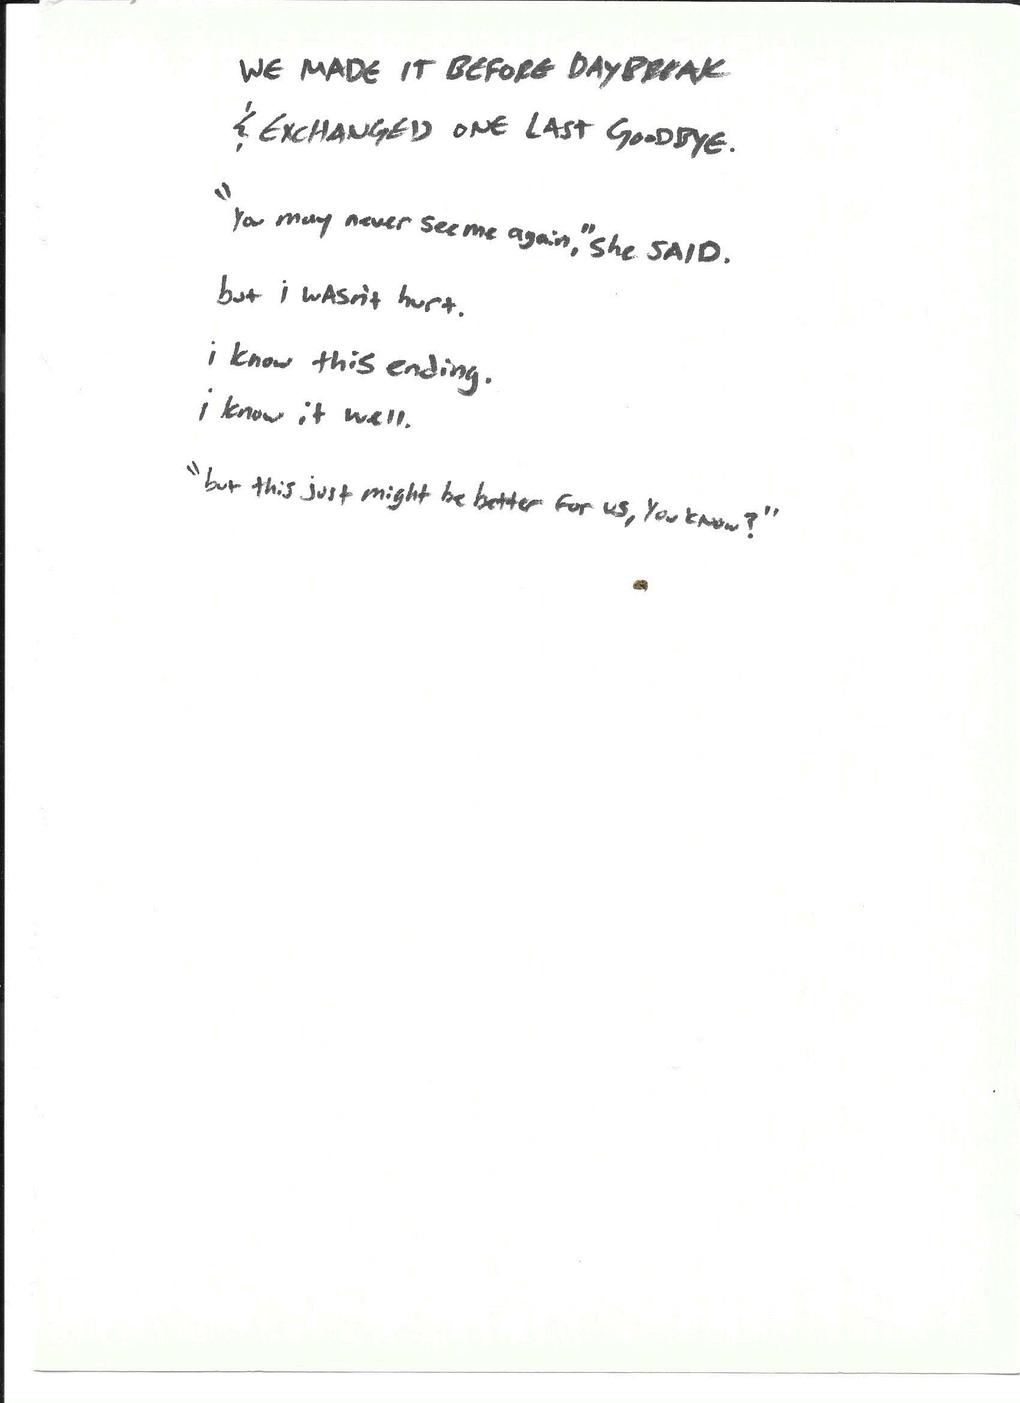 WE MADE IT BEFORE DAYBREAK
& EXCHANGED ONE LAST GOODBYE.
"You may never see me again," she SAID.
but i wASn't hurt.
i know this ending.
i know it well.
"but this just might be better for us, you know?"